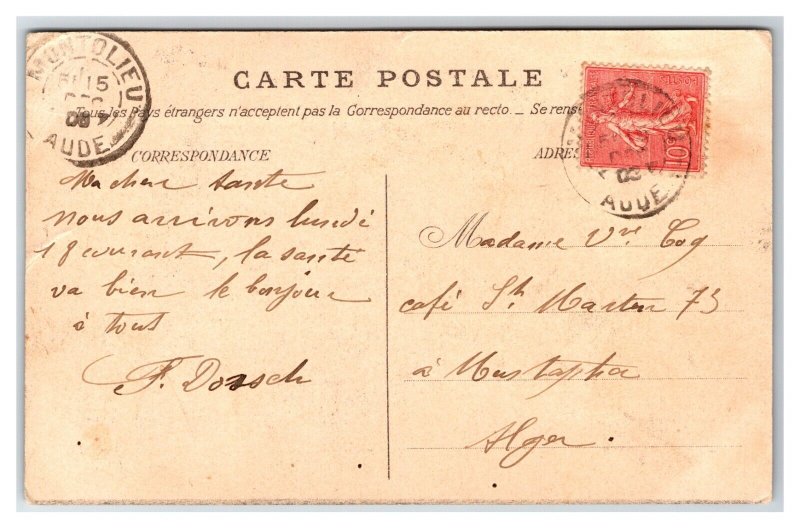 MONTOLIEU
15
08
AUDE
CARTE POSTALE
Tous les Pays étrangers n'acceptent pas la Correspondance au recto. _ Se rense
CORRESPONDANCE
ADRES
10
AUDE
Ma chere tante
nous arrivons lundi
18 courant, la santé
va bien le bonjour
à tous
F. Dorsch
Madame Vve Coq
café St Martin 73
à Mustapha
Alger